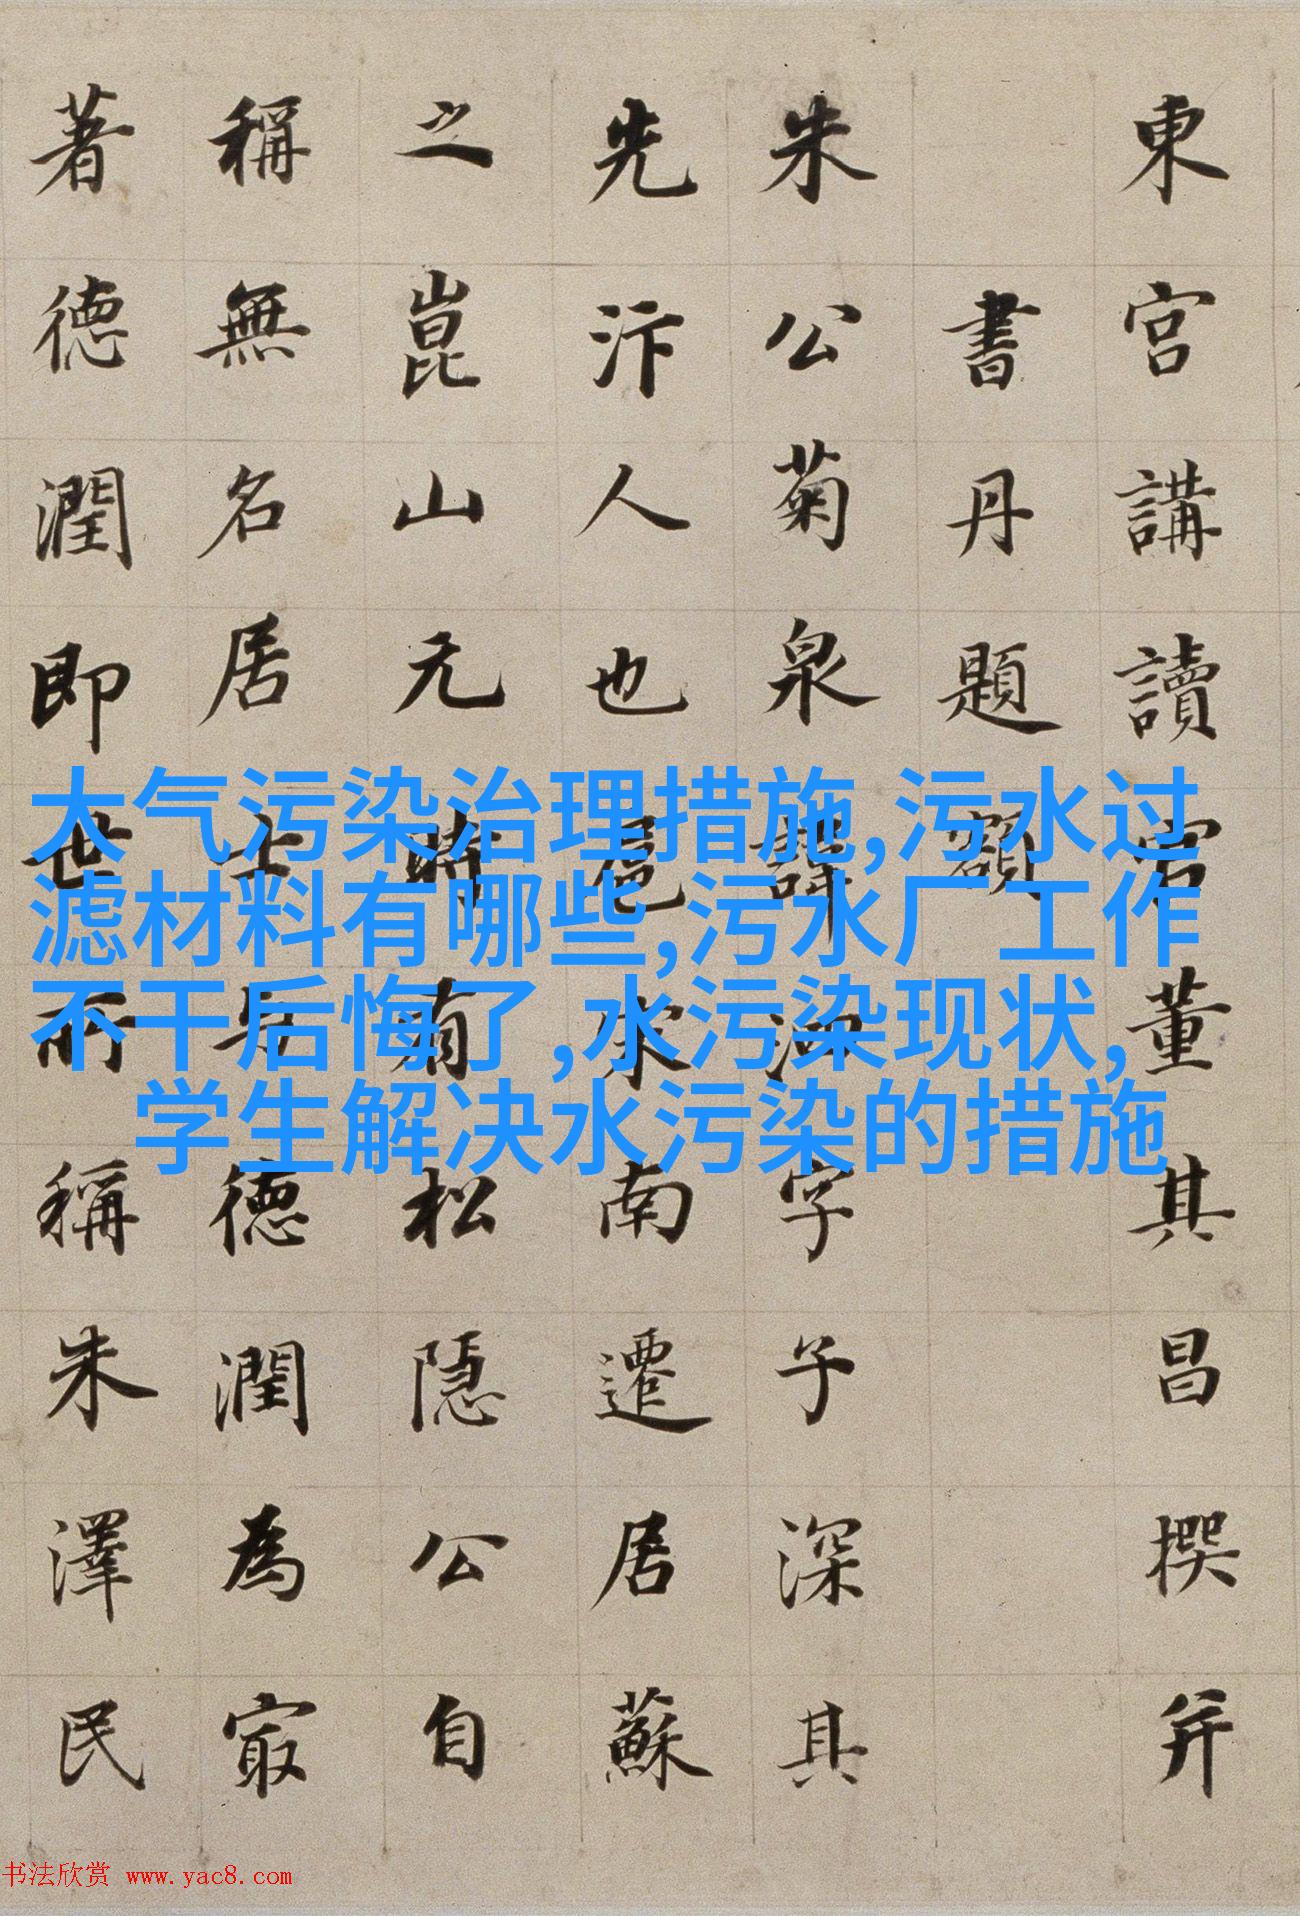 東宮講讀官董其昌撰并
書丹題額
朱公菊泉諱河字子深其
先汴人也扈宋南遷居蘇
之崑山元時有松隱公自
稱無名居士与德潤為㝡
著德潤即世所稱朱澤民
大气污染治理措施,污水过
滤材料有哪些,污水厂工作
不干后悔了,水污染现状,
学生解决水污染的措施
书法欣赏 www.yac8.com